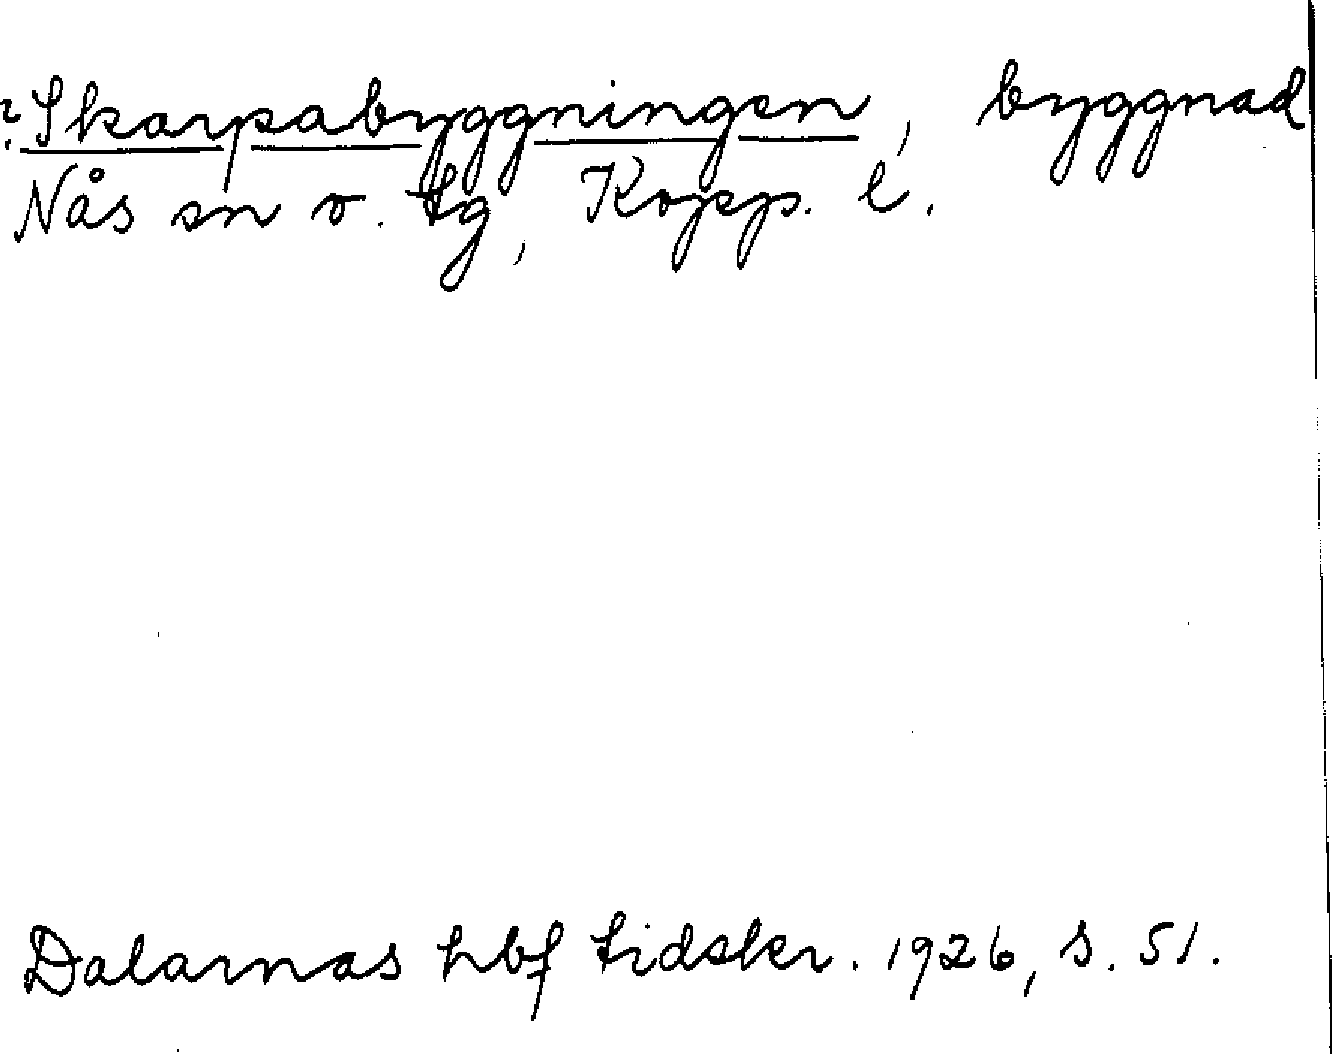 ?Skarpabyggningen, byggnad
Nås sn o. tg, Kopp. l.
Dalarnas hbf tidskr. 1926, s. 51.